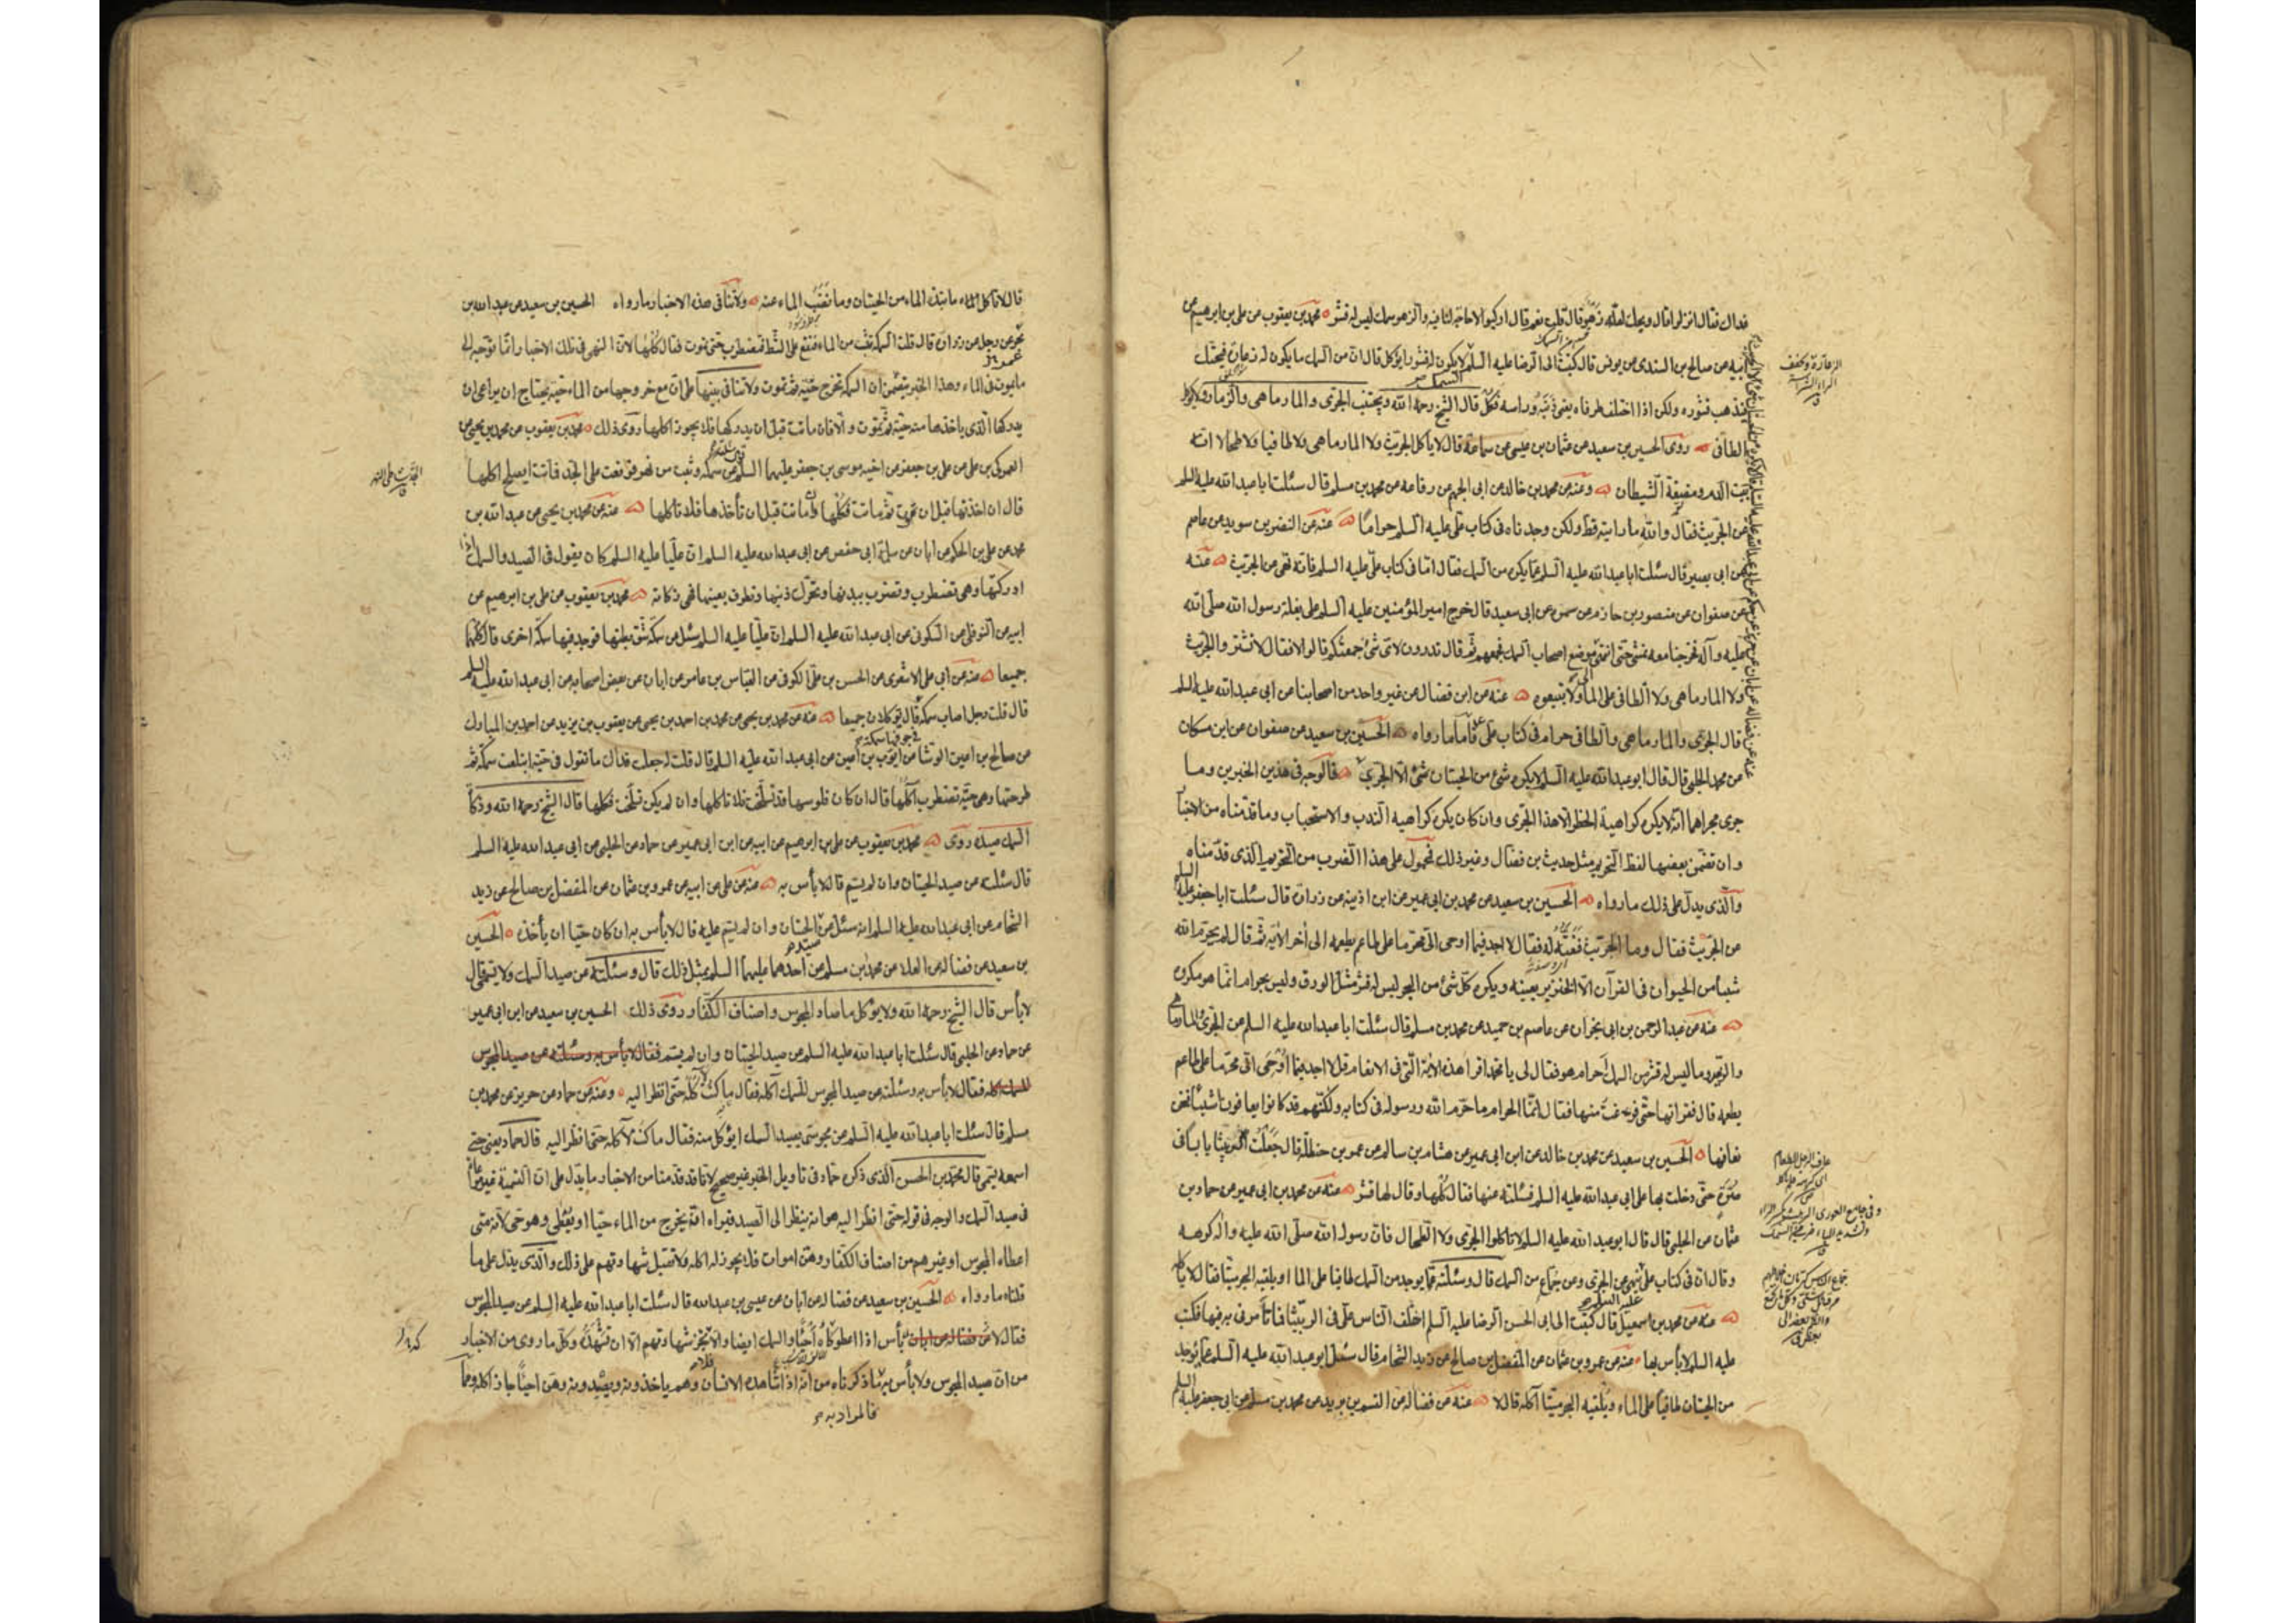 فداك فقال انزلوا قال ويحك لعله زهو قال قلت نعم قال اركبوا لا حاجة لنا فيه والزهو سمك ليس له قشر محمد بن يعقوب عن علي بن ابرهيم عن
ابيه عن صالح بن السندي عن يونس قال كتبت الى الرضا عليه السلم لا يكون له قشور ايؤكل قال ان من السمك ما يكون له زعارة فيحتك
فيذهب قشوره ولكن اذا اختلف طرفاه يعني ذنبه وراسه فكل قال الشيخ رحمه الله ويجتنب الجرى والمارماهى والزمار ولا يؤكل
الطافى روى الحسين بن سعيد عن عثمان بن عيسى عن سماعة قال لا ياكل الجريث ولا المارماهى ولا طافيا ولا طحالا انه
بيت الدم ومضيغة الشيطان وعنه عن محمد بن خالد عن ابى الجهم عن رفاعه عن محمد بن مسلم قال سئلت ابا عبد الله عليه السلم
عن الجريث فقال والله ما رايته قط ولكن وجدناه فى كتاب على عليه السلم حراما عنه عن النضر بن سويد عن عاصم
عن ابى بصير قال سئلت ابا عبد الله عليه السلم عما يكره من السمك فقال اما فى كتاب على عليه السلم فانه نهى عن الجريث عنه
عن صفوان عن منصور بن حازم عن سمره عن ابى سعيد قال خرج امير المؤمنين عليه السلم على بغلة رسول الله صلى الله
عليه وآله فخرجنا معه نمشى حتى انتهى موضع اصحاب السمك فجمعهم ثم قال تدرون لاى شئ جمعتكم قالوا لا فقال لا تشتروا الجريث
ولا المارماهى ولا الطافى على الماء ولا تبيعوه عنه عن ابن فضال عن غير واحد من اصحابنا عن ابى عبد الله عليه السلم
قال الجرى والمارماهى والطافى حرام فى كتاب على ع فاما ما رواه الحسين بن سعيد عن صفوان عن ابن مسكان
عن محمد الحلبى قال قال ابو عبد الله عليه السلم لا يكره شئ من الحيتان شئ الا الجرى فالوجه فى هذين الخبرين وما
جرى مجراهما انه لا يكره كراهية الحظر الا هذا الجرى وان كان يكره كراهيه الندب والاستحباب وما قدمناه من الاخبار
وان تضمن بعضها لفظ التحريم مثل حديث بن فضال وغير ذلك فمحمول على هذا الضرب من التحريم الذى قدمناه
والذى يدل على ذلك ما رواه الحسين بن سعيد عن محمد بن ابى عمير عن ابن اذينه عن زرارة قال سئلت ابا جعفر عليه السلم
عن الجريث فقال وما الجريث فنعته له فقال لا اجد فيما اوحى الى محرما على طاعم يطعمه الى اخر الاية ثم قال لم يحرم الله
شيئا من الحيوان فى القرآن الا الخنزير بعينه ويكره كل شئ من البحر ليس له قشر مثل الورق وليس بحرام انما هو مكروه
عنه عن عبد الرحمن بن ابى نجران عن عاصم بن حميد عن محمد بن مسلم قال سئلت ابا عبد الله عليه السلم عن الجرى والمارماهى
والزمير وما ليس له قشر من السمك احرام هو فقال لى يا محمد اقرا هذه الاية التى فى الانعام قل لا اجد فيما اوحى الى محرما على طاعم
يطعمه قال فقراتها حتى فرغت منها فقال انما الحرام ما حرم الله ورسوله فى كتابه ولكنهم قد كانوا يعافون اشياء فنحن
نعافها الحسين بن سعيد عن محمد بن خالد عن ابن ابى عمير عن هشام بن سالم عن عمر بن حنظلة قال حملت الربيثا يابسة فى
صرة حتى دخلت بها على ابى عبد الله عليه السلم فسئلته عنها فقال كلها وقال لها قشر عنه عن محمد بن ابى عمير عن حماد بن
عثمان عن الحلبى قال قال ابو عبد الله عليه السلم لا تاكلوا الجرى ولا الطحال فان رسول الله صلى الله عليه واله كرهه
وقال ان فى كتاب على ينهى عن الجرى وعن جماع من السمك قال وسئلته عما يوجد من السمك طافيا على الماء او يلقيه البحر ميتا فقال لا ياكله
عنه عن محمد بن اسمعيل قال كتبت الى ابى الحسن الرضا عليه السلم اختلف الناس على فى الربيثا فما تامرنى به فيها فكتب
عليه السلم لا باس بها عنه عن عمرو بن عثمان عن المفضل بن صالح عن زيد الشحام قال سئل ابو عبد الله عليه السلم عما يوجد
من الحيتان طافيا على الماء ويلقيه البحر ميتا آكله قال لا عنه عن فضاله عن القسم بن بريد عن محمد بن مسلم عن ابى جعفر عليه السلم
الزعارة وتخفف
الراء الشراسة
عاف الرجل الطعام
قال لا تاكل ما نبذه الماء من الحيتان وما نضب الماء عنه ولا ينافى هذه الاخبار ما رواه الحسين بن سعيد عن عبد الله بن
بحر عن رجل عن زرارة قال قلت السمكة تثب من الماء فتقع على الشط فتضطرب حتى تموت فقال كلها لان النهى فى تلك الاخبار انما توجه الى
ما يموت فى الماء وهذا الخبر يتضمن ان السمكة تخرج حية ثم تموت ولا تنافى بينها على ان مع خروجها من الماء حية يحتاج ان يراعى ان
يدركها الذى ياخذها منه حية ثم تموت والا فان ماتت قبل ان يدركها فلا يجوز اكلها روى ذلك محمد بن يعقوب عن محمد بن يحيى عن
العمركى بن على عن على بن جعفر عن اخيه موسى بن جعفر عليهما السلم عن سمكة وثبت من نهر فوقعت على الجد فماتت ايصلح اكلها
قال ان اخذتها قبل ان تموت ثم ماتت فكلها وان ماتت قبل ان تأخذها فلا تاكلها عنه عن محمد بن يحيى عن عبد الله بن
محمد عن على بن الحكم عن ابان عن سلمة ابى حفص عن ابى عبد الله عليه السلم ان عليا عليه السلم كان يقول فى الصيد والسمك اذا
ادركتها وهى تضطرب وتضرب بيديها وتحرك ذنبها وتطرف بعينها فهى ذكاته محمد بن يعقوب عن على بن ابرهيم عن
ابيه عن النوفلى عن السكونى عن ابى عبد الله عليه السلم ان عليا عليه السلم سئل عن سمكة شق بطنها فوجد فيها سمكة اخرى قال كلهما
جميعا عنه عن ابى على الاشعرى عن الحسن بن على الكوفى عن العباس بن عامر عن ابان عن بعض اصحابه عن ابى عبد الله عليه السلم
قال قلت رجل اصاب سمكة قال يؤكلان جميعا عنه عن محمد بن يحيى عن محمد بن احمد بن يحيى عن يعقوب بن يزيد عن احمد بن المبارك
فى جوفها سمكة
عن صالح بن اعين الوشا عن ايوب بن اعين عن ابى عبد الله عليه السلم قال قلت له جعلت فداك ما تقول فى حية ابتلعت سمكة ثم
طرحتها وهى حية تضطرب آكلها قال ان كان فلوسها قد تسلخت فلا تاكلها وان لم يكن تسلخت فكلها قال الشيخ رحمه الله وذكاة
السمك صيده روى محمد بن يعقوب عن على بن ابرهيم عن ابيه عن ابن ابى عمير عن حماد عن الحلبى عن ابى عبد الله عليه السلم
قال سئلته عن صيد الحيتان وان لم يسم قال لا بأس به عنه عن على عن ابيه عن عمرو بن عثمان عن المفضل بن صالح عن زيد
الشحام عن ابى عبد الله عليه السلم انه سئل عن الحيتان وان لم يسم عليه قال لا بأس به ان كان حيا ان يأخذه الحسين
بن سعيد عن فضاله عن العلاء عن محمد بن مسلم عن احدهما عليهما السلم بمثل ذلك قال وسئلته عن صيد السمك ولا يسمى قال
لا بأس قال الشيخ رحمه الله ولا يؤكل ما صاد المجوس واصناف الكفار روى ذلك الحسين بن سعيد عن ابن ابى عمير
عن حماد عن الحلبى قال سئلت ابا عبد الله عليه السلم عن صيد الحيتان وان لم يسم فقال لا بأس به وسئلته عن صيد المجوس
للسمك آكله فقال لا بأس به وسئلته عن صيد المجوس للسمك آكله فقال ما كنت لآكله حتى انظر اليه وعنه عن حماد عن حريز عن محمد بن
مسلم قال سئلت ابا عبد الله عليه السلم عن مجوسى يصيد السمك ايؤكل منه فقال ما كنت لآكله حتى انظر اليه قال حماد يعنى حتى
اسمعه يسمى قال محمد بن الحسن الذى ذكره حماد فى تاويل الخبر غير صحيح لانا قد قدمنا من الاخبار ما يدل على ان التسمية غير مراعاة
فى صيد السمك والوجه فى قوله حتى انظر اليه هو انه ينظر الى الصيد فيراه انه يخرج من الماء حيا او يعطى وهو حى لانه متى
اعطاه المجوس او غيرهم من اصناف الكفار وهى اموات فلا يجوز له اكله ولا تقبل شهادتهم على ذلك والذى يدل على ما
قلناه ما رواه الحسين بن سعيد عن فضاله عن ابان عن عيسى بن عبد الله قال سئلت ابا عبد الله عليه السلم عن صيد المجوس
فقال لا عن فضاله عن ابان بأس اذا اعطوكاه احيا والسمك ايضا والا فلا تجز شهادتهم الا ان تشهده وكل ما روى من الاخبار
من ان صيد المجوس ولا بأس به ما ذكرناه من انه اذا شاهده الانسان وهم ياخذونه ويصيدونه وهى احيا جاز اكله وما
فالمراد به